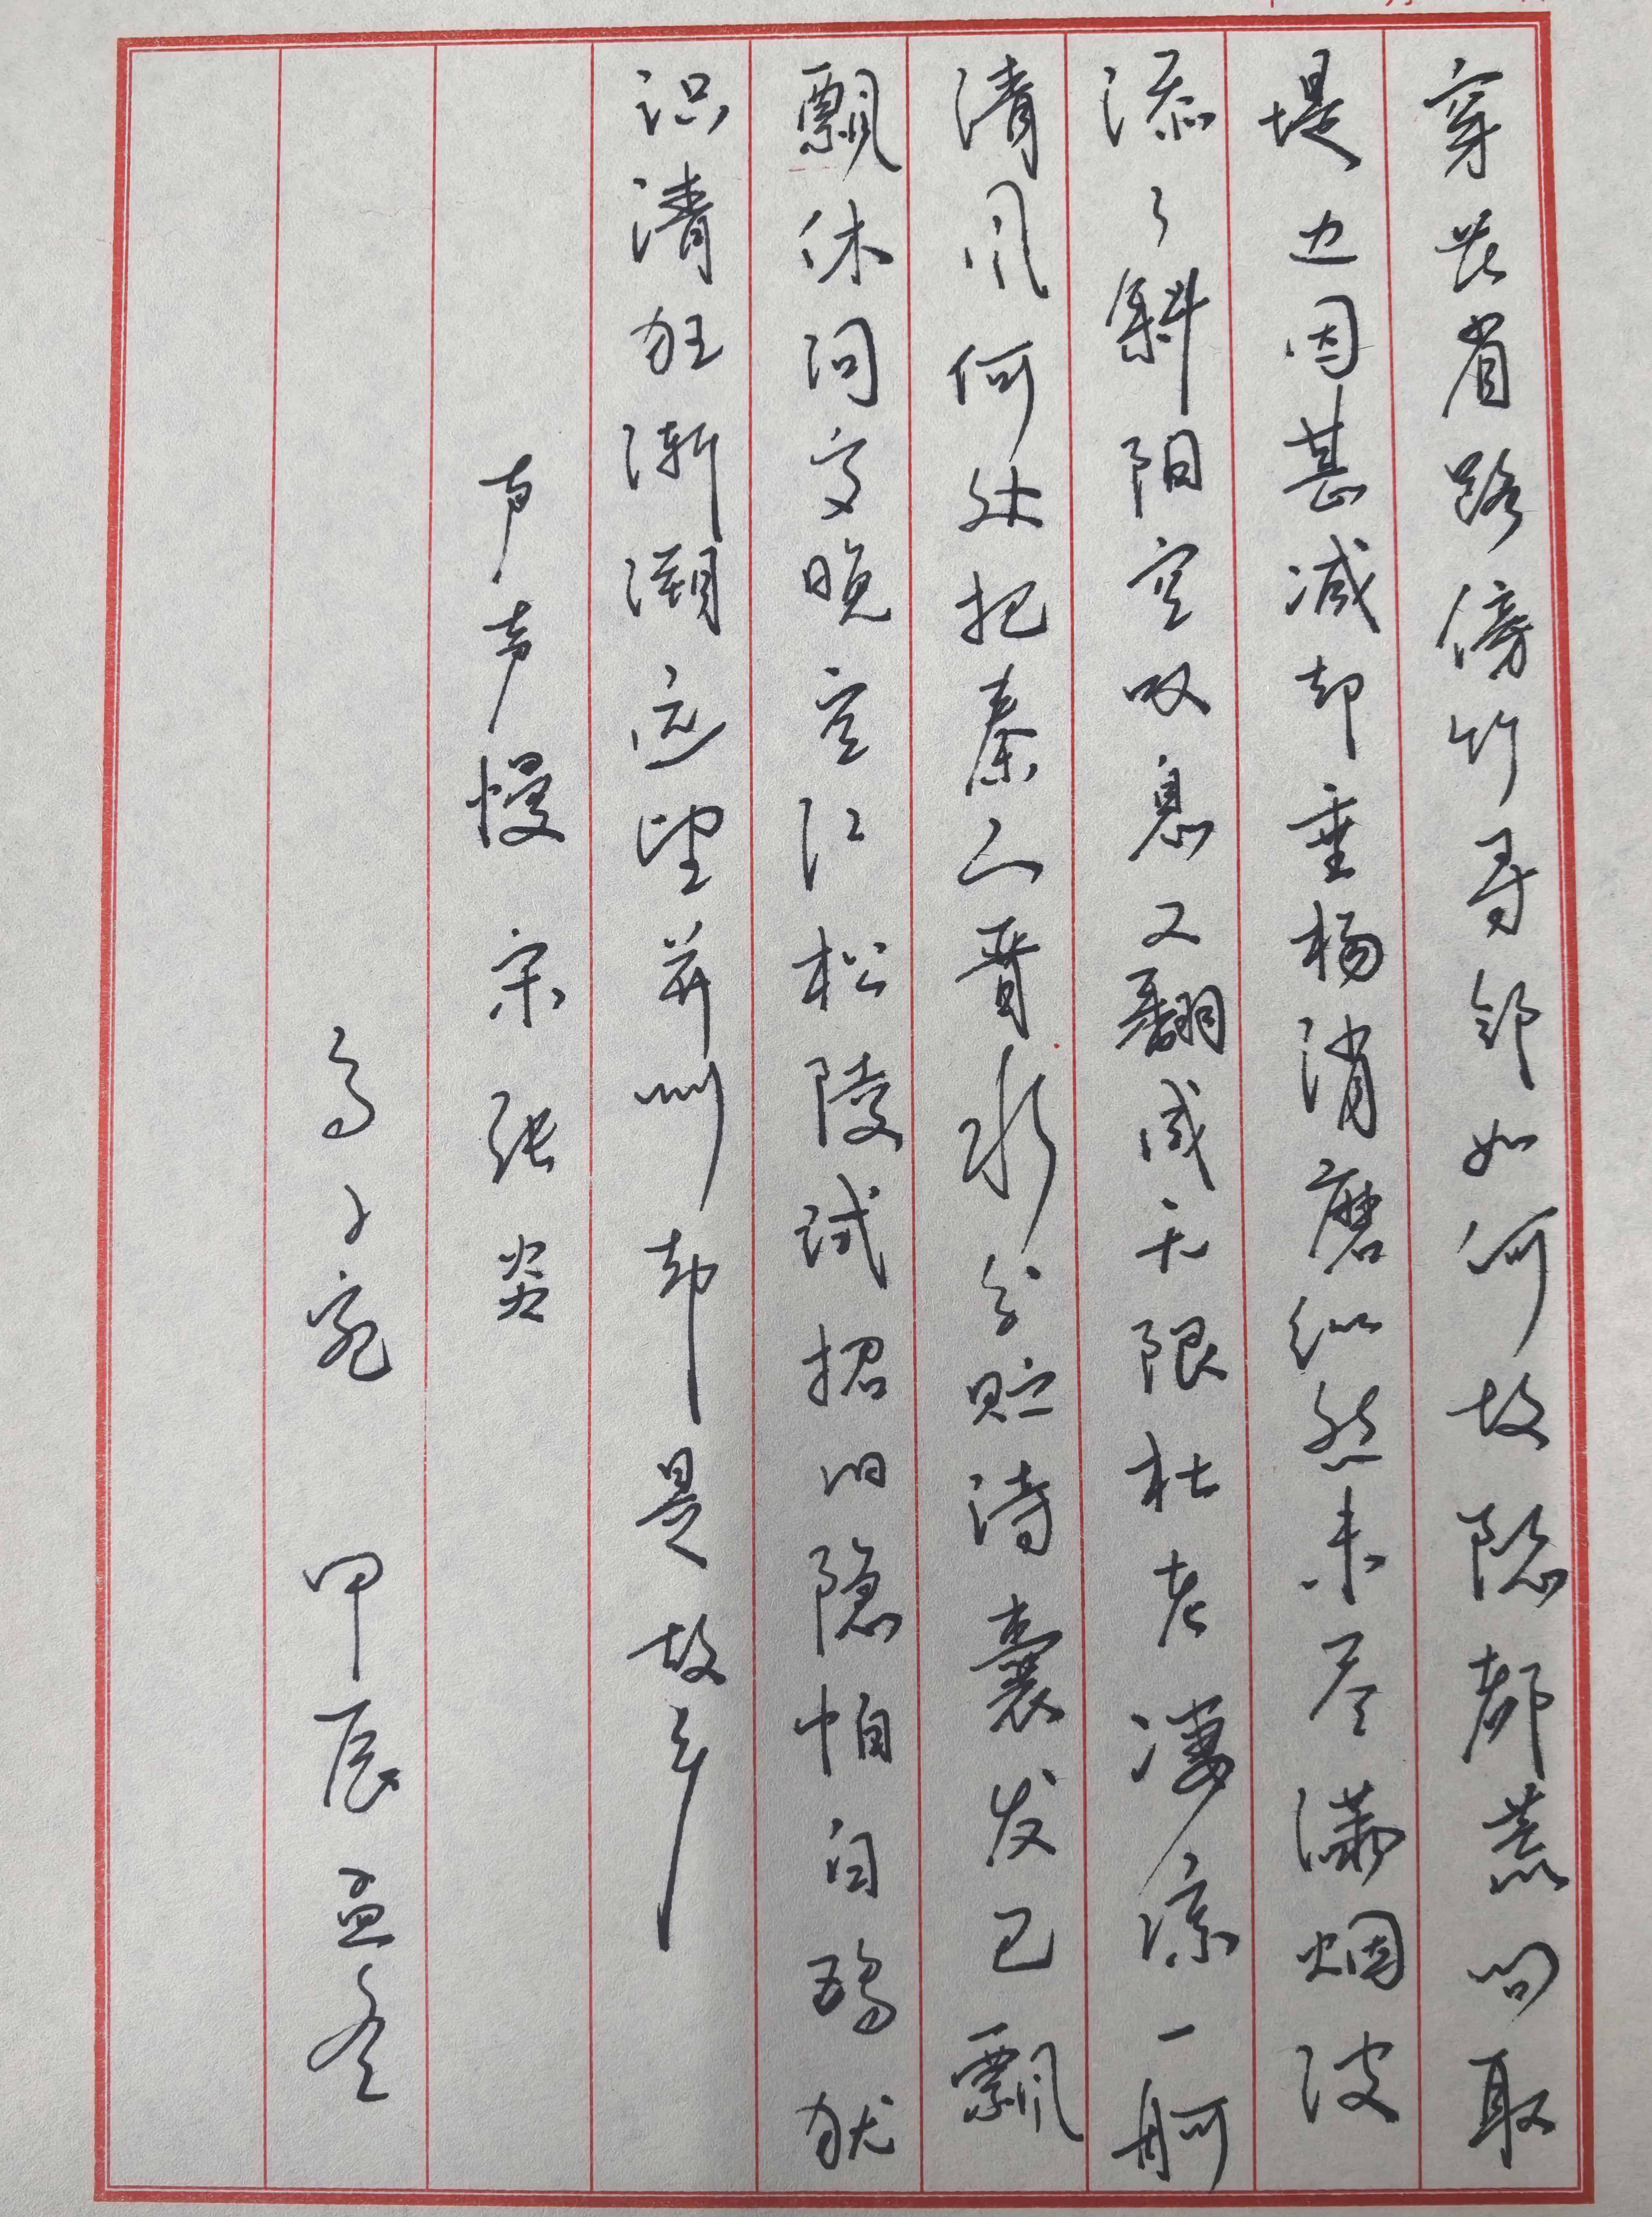 穿花省路傍竹寻邻如何故隐都荒问取
堤边因甚减却垂杨消磨纵然未尽满烟波
添了斜阳空叹息又翻成无限杜老凄凉一舸
清风何处把秦山晋水分贮诗囊发已飘
飘休问岁晚空江松陵试招旧隐怕白鸥犹
识清狂渐溯远望并州却是故乡
声声慢 宋 张炎
甲辰孟冬